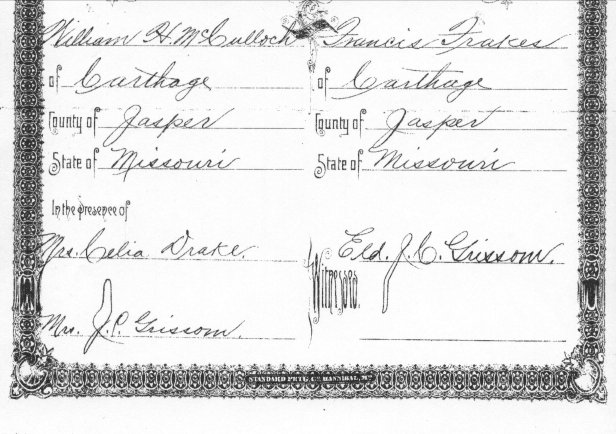 William H. McCulloch Francis Frakes
of Carthage of Carthage
County of Jasper County of Jasper
State of Missouri State of Missouri
In the presence of
Mrs. Celia Drake. Eld. J. C. Grissom.
Witnesses
Mrs. J. C. Grissom.
STANDARD PRTG. CO. HANNIBAL, MO.